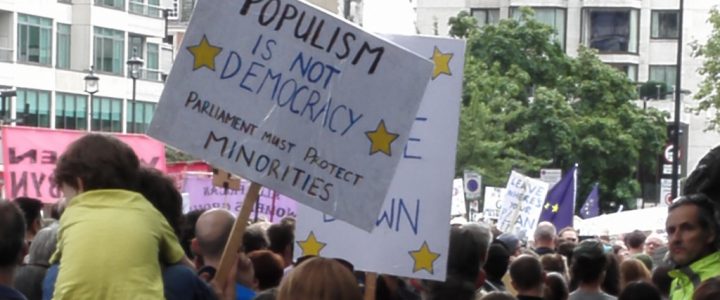 POPULISM
IS NOT
DEMOCRACY
PARLIAMENT MUST PROTECT
MINORITIES
E
E
WN
LEAVE
WHERE'S
YOUR
PLAN